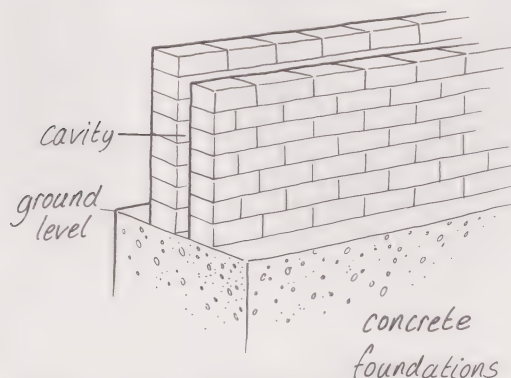 cavity
ground
level
concrete
foundations